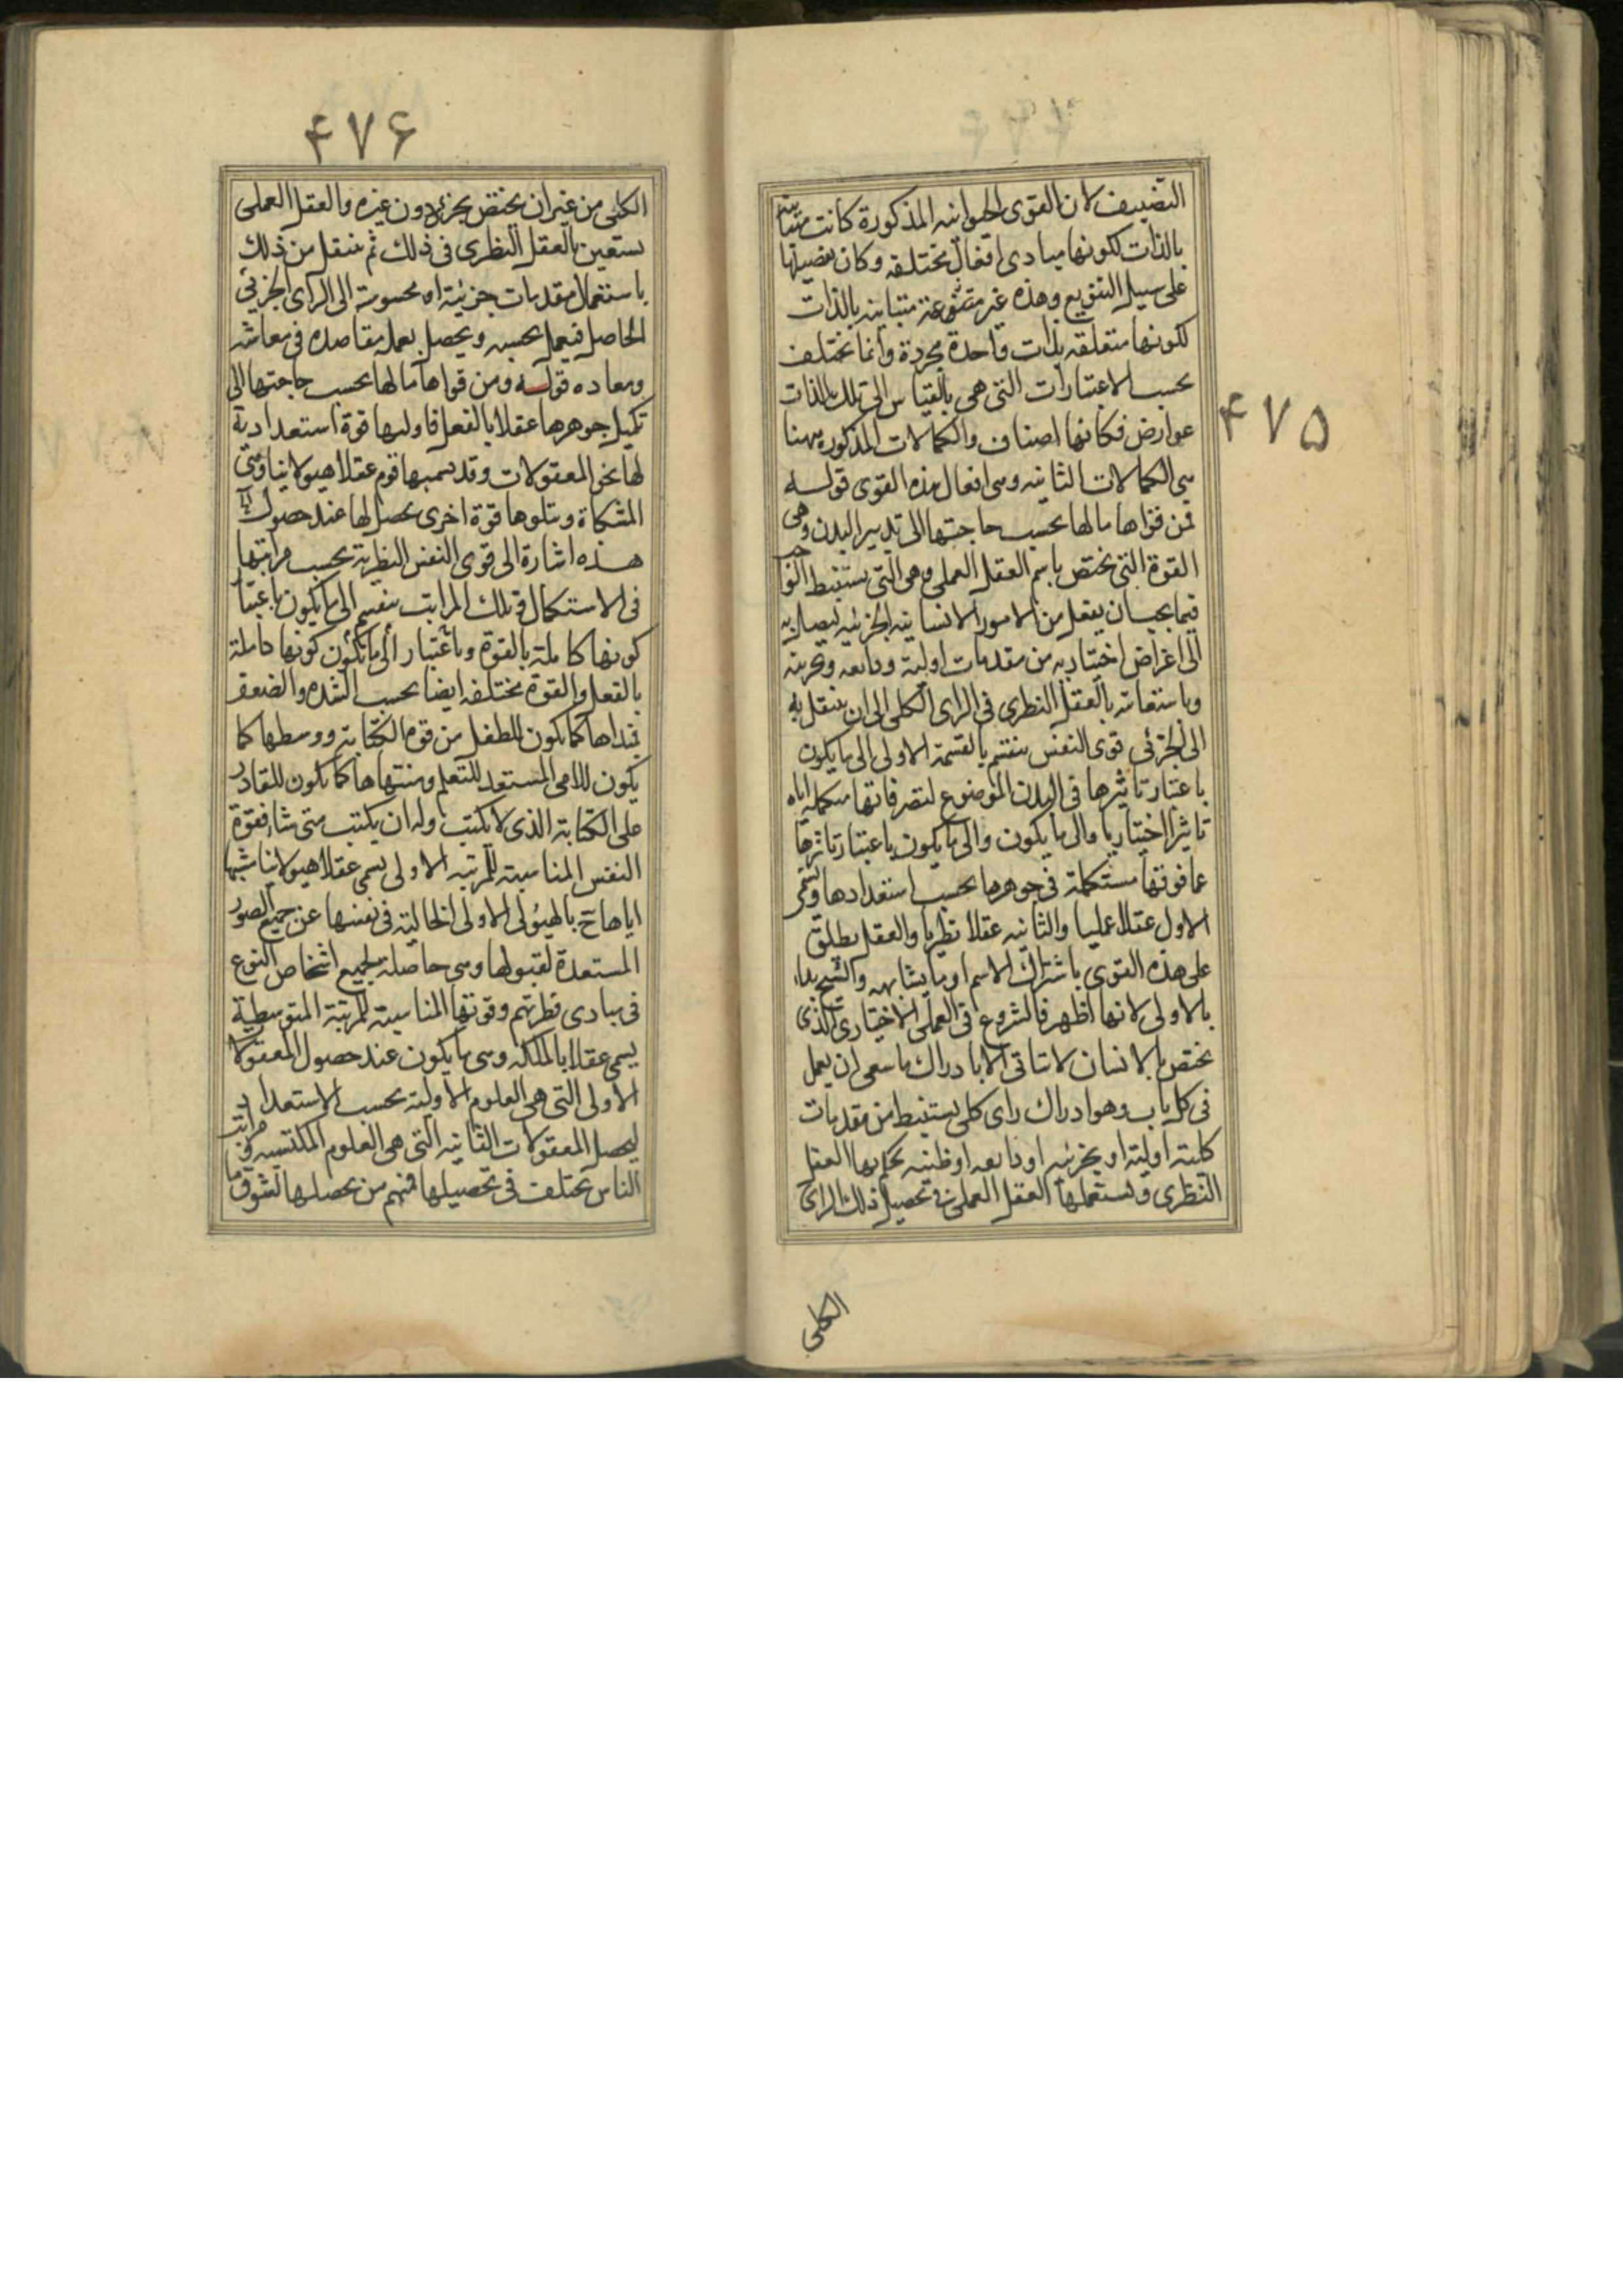 ۴۷۵
التصنيف لان القوى الحيوانيه المذكورة كانت متباينة
بالذات لكونها مبادى افعال مختلفه وكان تفصيلها
على سبيل التنويع وهذه غير متنوعة متباينه بالذات
لكونها متعلقه بذات واحدة مجردة وانما تختلف
بحسب الاعتبارات التى هى بالقياس الى تلك الذات
عوارض فكانها اصناف والكمالات المذكوره ههنا
هى الكمالات الثانيه وهى افعال هذه القوى قوله
فمن قواها مالها بحسب حاجتها الى تدبير البدن وهى
القوة التى تختص باسم العقل العملى وهى التى يستنبط الواجب
فيما يجب ان يفعل من الامور الانسانيه الجزئيه ليصل به
الى اغراض اختياريه من مقدمات اولية وذايعه وتجربيه
وباستعانته بالعقل النظرى فى الراى الكلى الى ان ينتقل به
الى الجزئى قوى النفس ينقسم بالقسمة الاولى الى ما يكون
باعتبار تاثيرها فى البدن الموضوع لتصرفاتها مكمله اياه
تاثيرا اختياريا والى ما يكون والى ما يكون باعتبار تاثرها
عما فوقها مستكملة فى جوهرها بحسب استعدادها ويسمى
الاول عقلا عمليا والثانيه عقلا نظريا والعقل يطلق
على هذه القوى باشتراك الاسم او ما يشابهه والشيخ بداء
بالاولى لانها اظهر فالشروع فى العملى الاختيارى الذى
يختص بالانسان لا تتاتى الا بادراك ما سعى ان يعمل
فى كل باب وهو ادراك راى كلى يستنبط من مقدمات
كلية اولية او تجربيه او ذايعه او ظنيه يحكم بها العقل
النظرى ويستعملها العقل العملى فى تحصيل ذلك الراى
الكلى
۴۷۶
الكلى من غير ان يختص بجزئى دون غيره والعقل العملى
يستعين بالعقل النظرى فى ذلك ثم ينتقل من ذلك
باستعمال مقدمات جزئية او محسوسة الى الراى الجزئى
الحاصل فيعمل بحسبه ويحصل بعمله مقاصده فى معاشه
ومعاده قوله ومن قواها مالها بحسب حاجتها الى
تكميل جوهرها عقلا بالفعل فاولیها قوة استعدادية
لها نحو المعقولات وقد يسميها قوم عقلا هيولانيا وهى
المشكاة ويتلوها قوة اخرى يحصل لها عند حصول
هذه اشارة الى قوى النفس النظرية بحسب مراتبها
فى الاستكمال وتلك المراتب ينقسم الى ما يكون باعتبار
كونها كاملة بالقوة وباعتبار الى ما يكون كونها كاملة
بالفعل والقوة مختلفه ايضا بحسب الشده والضعف
فمبداها كما يكون للطفل من قوم الكتابة ووسطها كما
يكون للامى المستعد للتعلم ومنتهاها كما يكون للقادر
على الكتابة الذى لا يكتب وله ان يكتب متى شاء فقوة
النفس المناسبة للمرتبه الاولى يسمى عقلا هيولانيا تشبيها
اياها ح بالهيولى الاولى الخالية فى نفسها عن جميع الصور
المستعدة لقبولها وهى حاصلة لجميع اشخاص النوع
فى مبادى فطرتهم وقوتها المناسبة للمرتبة المتوسطية
يسمى عقلا بالملكه وهى ما يكون عند حصول المعقولات
الاولى التى هى العلوم الاولية بحسب الاستعداد
ليحصل المعقولات الثانيه التى هى العلوم المكتسبه ومراتب
الناس تختلف فى تحصيلها فمنهم من يحصلها لشوق ما